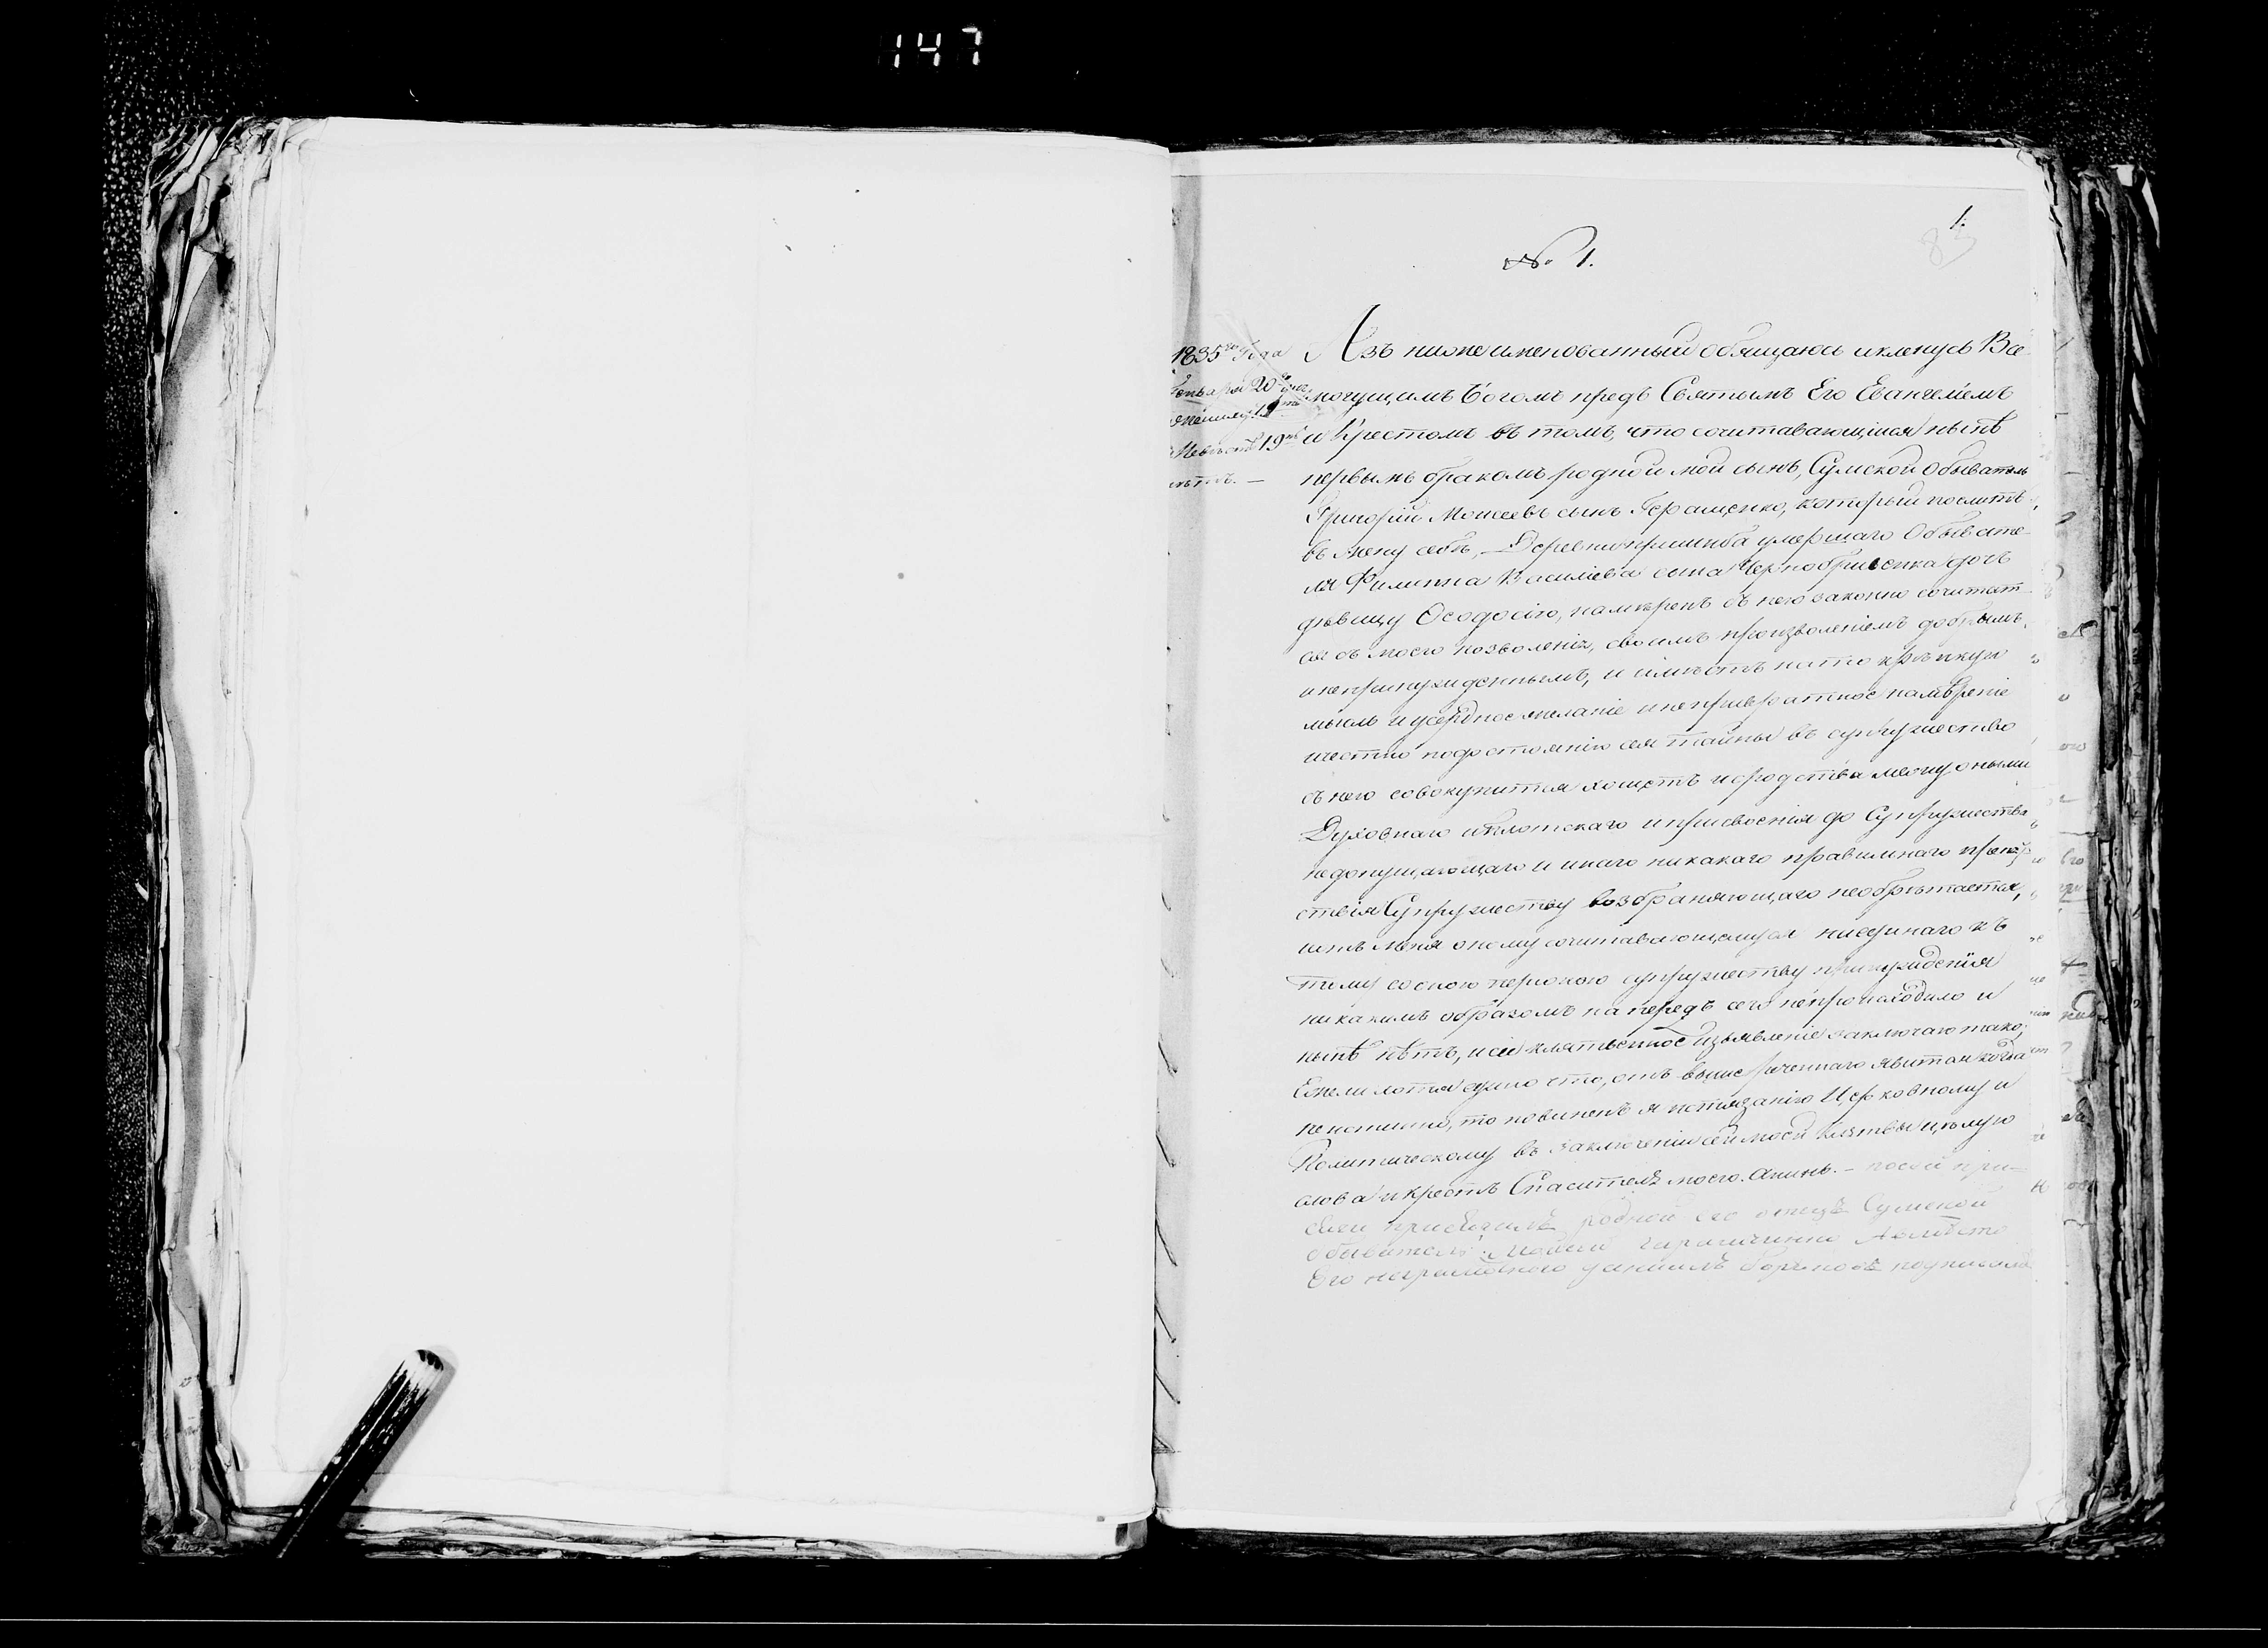 147
1.
83
№ 1.
1835го Года
Генваря 20го дня
жениху 19ть
Невѣстѣ 19ть
лѣтъ. —
Азъ нижеименованный обѣщаюсь и кленусь Все
могущимъ Богомъ предъ Святымъ Его Евангелиемъ
и Крестомъ въ томъ, что сочитавающийся нынѣ
первымъ бракомъ родной мой сынъ, Сумской обыватель
Григорий Моисеевъ сынъ Геращенко, который поемлетъ
въ жену себѣ, Деревни умершаго Обывате
ля Филиппа Васильева сына дочь
дѣвицу Ѳеодосію, намѣренъ съ нею законно сочитат
ся съ моего позволенія, своимъ произволеніемъ добрымъ
и непринужденнымъ, и имѣетъ на то крѣпкую
мысль и усердное желаніе и непревратное намѣреніе
и честно по достоянію сея тайны въ супружество
съ нею совокупится хощетъ и сродства между оными
Духовнаго и плотскаго и присвоенія до Супружества
недопущающаго и инаго никакаго правилнаго препят
ствія Супружеству возбраняющаго необрѣтается,
и отъ меня оному сочитавающемуся ниединаго къ
тому со оною персоною супружеству принужденія
никакимъ образомъ напередъ сего непроисходило и
нынѣ нѣтъ, и сіе клятвенное изъявленіе заключаю тако,
Ежели хотя едино что, отъ выше реченнаго явится когда
неистинно, то повиненъ я истязанію Церковному и
Политическому въ заключеніи сей моей клятвы цѣлую
слова и крестъ Спасителя моего. Аминь. — по сей при-
сяги присягилъ родной его отецъ Сумской
обыватель Мойсей Геращенко
Его неграмотного подписался